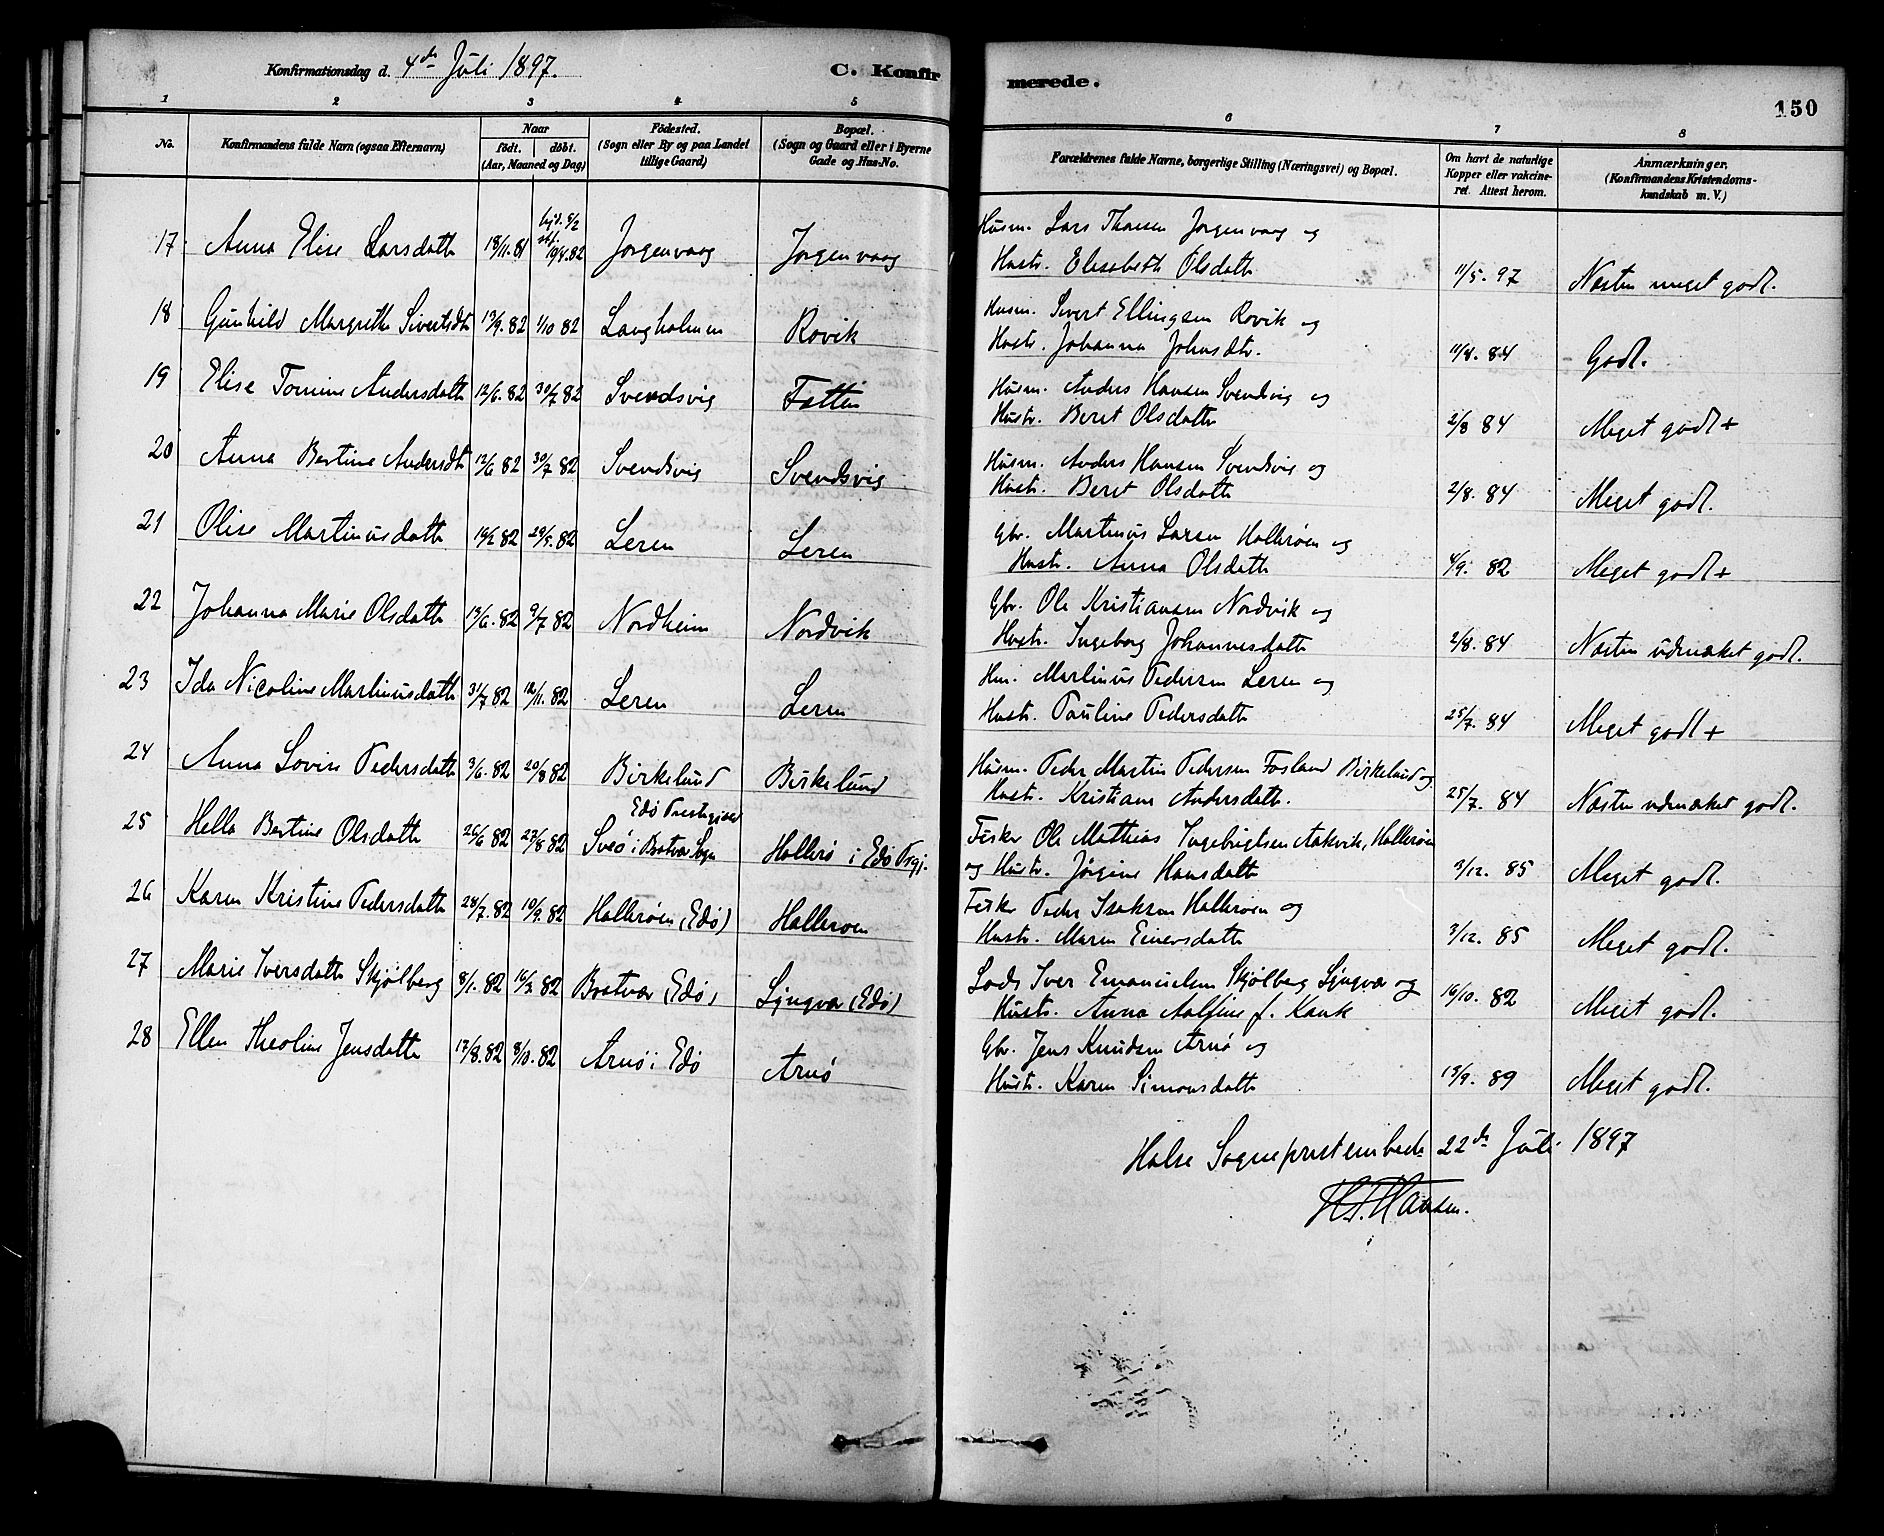 Konfirmationsdag d. 4de Juli 1897.
C. Konfirmerede.
150
1 2 3 4 5 6 7 8
No.
Konfirmandens fulde Navn (ogsaa Efternavn)
Naar
födt. döbt.
(Aar, Maaned og Dag)
Födested.
(Sogn eller By og paa Landet
tillige Gaard)
Bopæl.
(Sogn og Gaard eller i Byerne
Gade og Hus-No.
Forældrenes fulde Navne, borgerlige Stilling (Næringsvei) og Bopæl.
Om havt de naturlige
Kopper eller vakcine-
ret. Attest herom.
Anmærkninger,
(Konfirmandens Kristendoms-
kundskab m. V.)
17 Anna Elise Larsdatter 18/11. 81 hjd. 5/2 stf. 10/4.82 Jørgenvaag Jørgenvaag
Husm. Lars Jørgenvaag og
Hustr. Elisabeth Olsdatter 11/5. 97 Næsten meget godt.
18 Gunhild Margrethe Sivertsdtr 13/9. 82 1/10 82 Langholmen Rovik
Husm. Sivert Ellingsen Rovik og
Hustr. Johanna Johnsdtr. 11/8. 84 Godt.
19 Elise Tomine Andersdatter 12/6. 82 30/7 82 Svendsvig Fætten
Husm. Anders Hansen Svendsvig og
Hustr. Beret Olsdatter 2/8 84 Meget godt +
20 Anna Bertine Andersdtr 12/6 82 30/7 82 Svendsvig Svendsvig
Husm. Anders Hansen Svendsvig og
Hustr. Beret Olsdatter 2/8. 84 Meget godt.
21 Olise Martinusdatter 19/2 82 29/5. 82 Leren Leren
Gbr. Martinus Larsen Hallerøen og
Hustr. Anna Olsdatter 4/9. 82 Meget godt +
22 Johanna Marie Olsdatter 13/6. 82 9/7 82 Nordheim Nordvik
Gbr. Ole Kristiansen Nordvik og
Hustr. Ingeborg Johannesdatter 2/8. 84 Næsten udmærket godt.
23 Ida Nicoline Martinusdatter 31/7 82 12/11. 82 Leren Leren
Hm. Martinus Pedersen Leren og
Hustr. Pauline Pedersdatter 25/7. 84 Meget godt +
24 Anna Lovise Pedersdatter 3/6. 82 20/8 82 Birkelund Birkelund
Husm. Peder Martin Pedersen Fosland Birkelund og
Hustr. Kristiane Andersdatter. 25/7. 84 Næsten udmærket godt.
25 Hella Bertine Olsdatter 25/6 82 27/8 82 Edø Prestegjeld
Sveø i Bratvær Sogn Hallerø i Edø Psgj.
Fisker Ole Mathias Ingebrigtsen Aakvik, Hallerøen
og Hustr. Jørgine Hansdatter 3/12. 85 Meget godt.
26 Karen Kristine Pedersdatter 28/7. 82 10/9. 82 Hallerøen (Edø) Hallerøen
Fisker Peder Isaksen Hallerøen og
Hustr. Maren Einersdatter 3/12. 85 Meget godt.
27 Marie Iversdatter Skjølberg 8/1. 82 16/2 82 Bratvær (Edø) Lyngvær (Edø)
Lods Iver Emanuelsen Skjølberg Lyngvær og
Hustr. Anna Aalfine f. Kauk 16/10. 82 Meget godt.
28 Ellen Theoline Jensdatter 13/8. 82 8/10. 82 Arnø i Edø Arnø
Gbr. Jens Knudsen Arnø og
Hustr. Karen Simonsdatter 13/9. 89 Meget godt.
Halse Sogneprestembede 22de Juli 1897
Hansen.